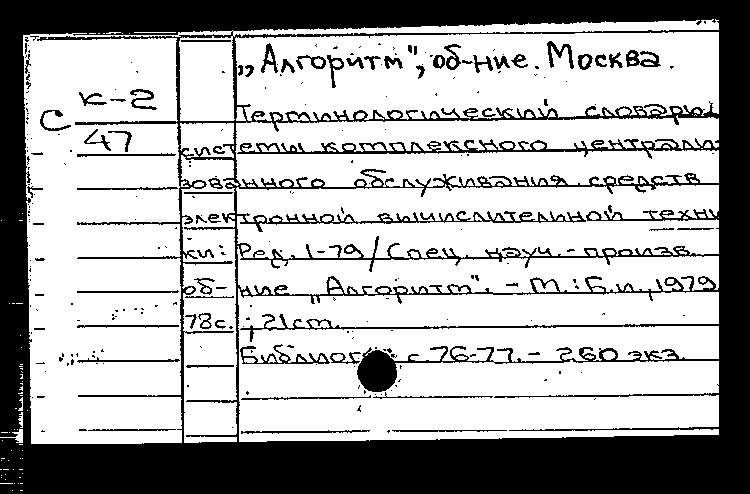 „Алгоритм", об-ние. Москва.
С К-2
47
Терминологический словарь
системы комплексного централи-
зованного обслуживания средств
электронной вычислительной техни
ки: Ред. 1-79 / Спец. науч.-произв.
об-ние „Алгоритм". - М.: Б.и., 1979
78с. ; 21см.
Библиогр с. 76-77. - 260 экз.